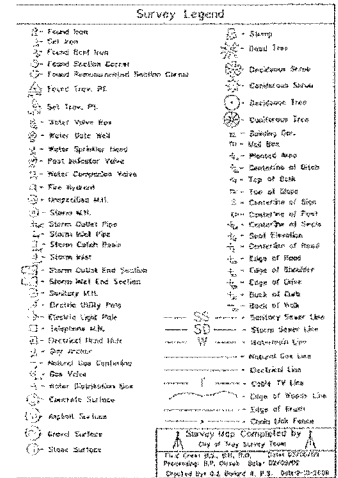 Survey Legend
- Found Iron
- Set Iron
- Found Bent Iron
- Found Section Corner
- Found Remonumented Section Corner
- Found Trav. Pt.
- Set Trav. Pt.
- Water Valve Box
- Water Gate Well
- Water Sprinkler Head
- Post Indicator Valve
- Water Companion Valve
- Fire Hydrant
- Unspecified M.H.
- Storm M.H.
- Storm Outlet Pipe
- Storm Inlet Pipe
- Storm Catch Basin
- Storm Inlet
- Storm Outlet End Section
- Storm Inlet End Section
- Sanitary M.H.
- Electric Utility Pole
- Electric Light Pole
- Telephone M.H.
- Electrical Hand Hole
- Guy Anchor
- Natural Gas Centerline
- Gas Valve
- Water Distribution Box
- Concrete Surface
- Asphalt Surface
- Gravel Surface
- Stone Surface
- Stump
- Dead Tree
- Deciduous Shrub
- Coniferous Shrub
- Deciduous Tree
- Coniferous Tree
- Building Cor.
- Mail Box
- Planted Area
- Centerline of Ditch
- Top of Bank
- Toe of Slope
- Centerline of Sign
- Centerline of Post
- Spot Elevation
- Centerline of Road
- Edge of Road
- Edge of Shoulder
- Edge of Drive
- Back of Curb
- Back of Walk
SS - Sanitary Sewer Line
SD - Storm Sewer Line
W - Watermain Line
- Natural Gas Line
- Electrical Line
T - Cable TV Line
- Edge of Woods Line
- Edge of Brush
- Chain Link Fence
Survey Map Completed by
City of Troy Survey Team